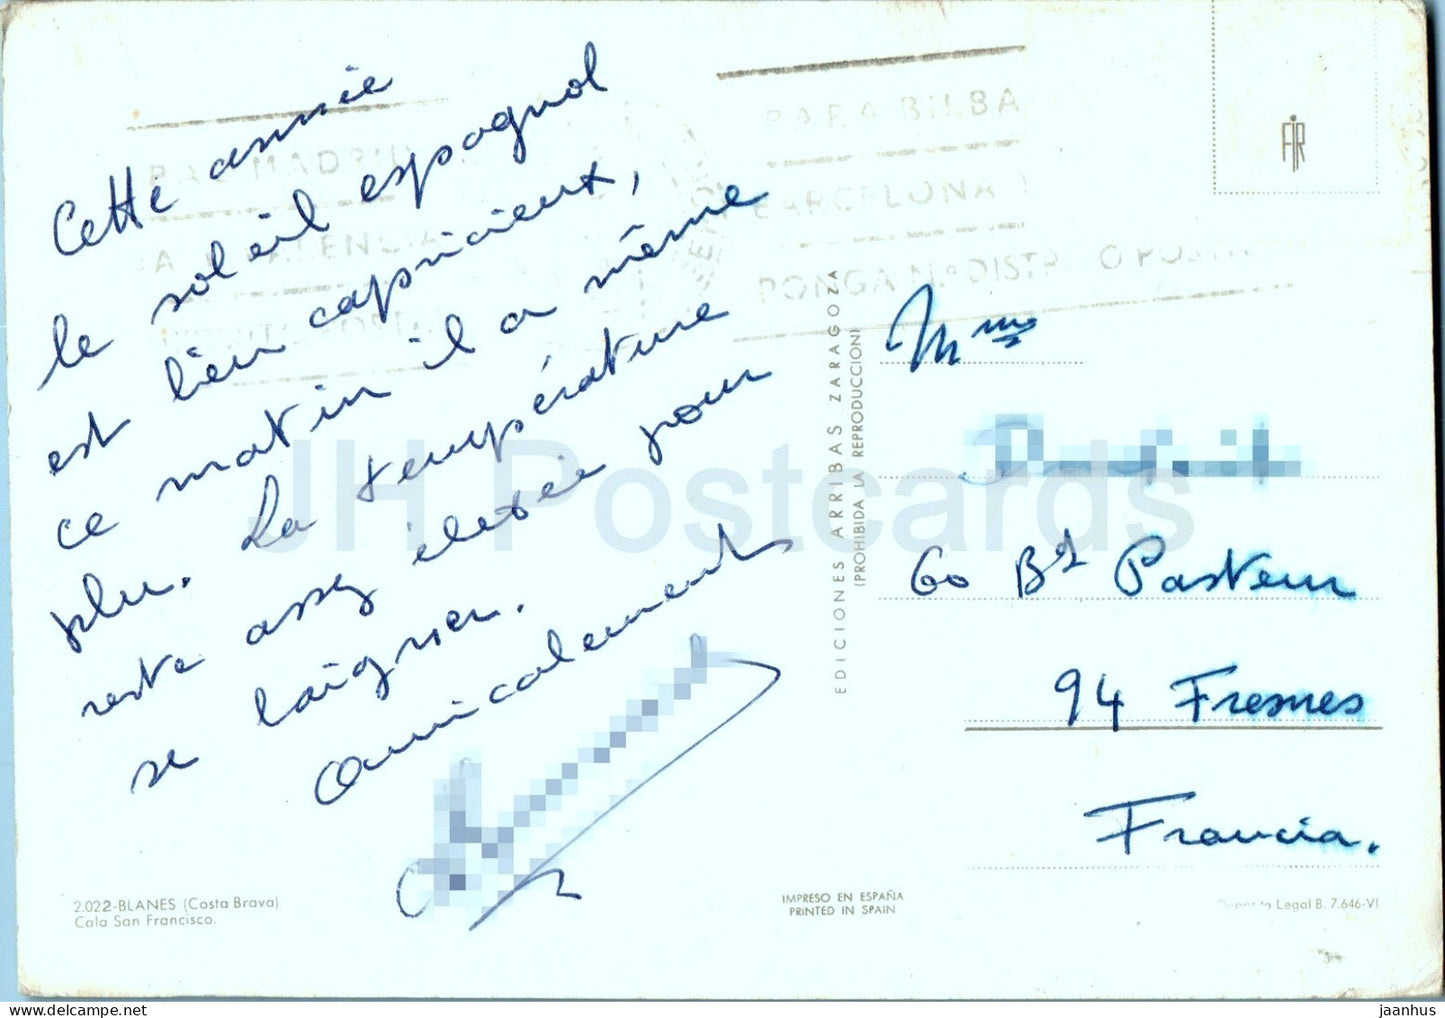 Cette année
le soleil espagnol
est bien capricieux,
ce matin il a même
plu. La température
reste assez élevée pour
se baigner.
Amicalement
Mme
60 Bd Pasteur
94 Fresnes
Francia.
EDICIONES ARRIBAS ZARAGOZA
(PROHIBIDA LA REPRODUCCION)
FIR
PARA MADRID
VALENCIA
PARA BILBA
BARCELONA
PONGA N.º DISTR
2.022-BLANES (Costa Brava)
Cala San Francisco.
IMPRESO EN ESPAÑA
PRINTED IN SPAIN
Depósito Legal B. 7.646-VI
JH Postcards
jaanhus